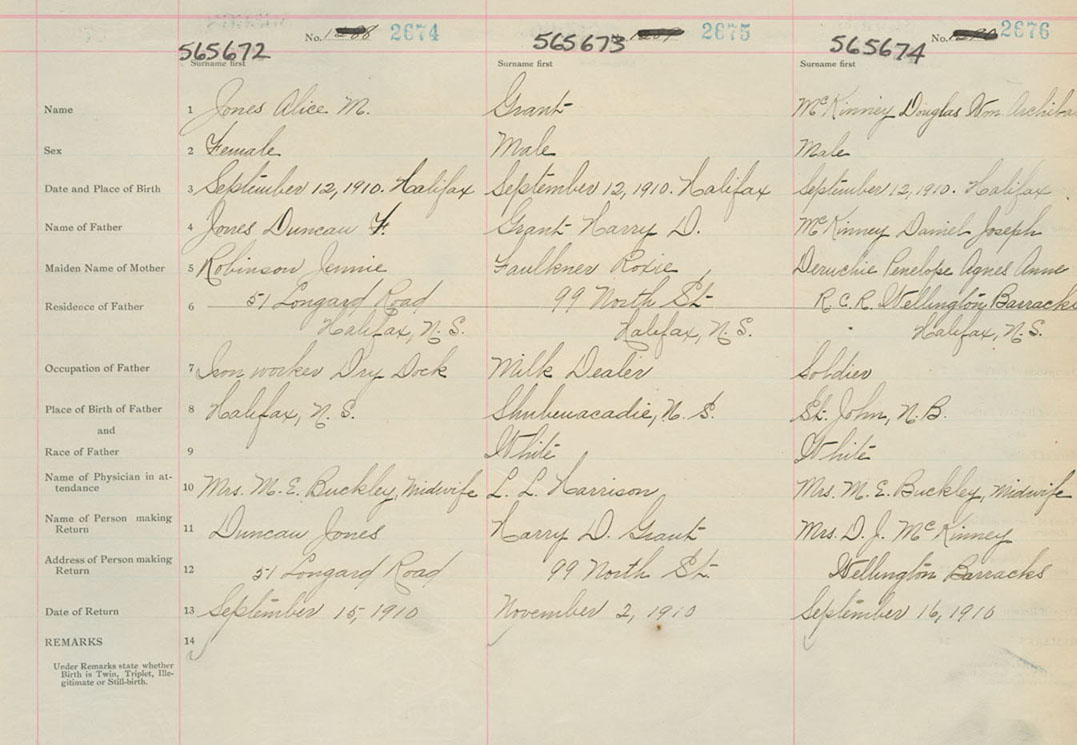 No. 2674 2675 No. 2676
565672 565673 565674
Surname first Surname first Surname first
Name 1 Jones Alice M. Grant McKinney Douglas Wm. Archiba
Sex 2 Female Male Male
Date and Place of Birth 3 September 12, 1910. Halifax September 12, 1910. Halifax September 12, 1910. Halifax
Name of Father 4 Jones Duncan F. Grant Harry D. McKinney Daniel Joseph
Maiden Name of Mother 5 Robinson Jennie Faulkner Roxie Deruchie Penelope Agnes Anne
Residence of Father 6 51 Longard Road 99 North St. R.C.R. Wellington Barracks
Halifax, N.S. Halifax, N.S. Halifax, N.S.
Occupation of Father 7 Iron worker Dry Dock Milk Dealer Soldier
Place of Birth of Father 8 Halifax, N.S. Shubenacadie, N.S. St. John, N.B.
and
Race of Father 9 White White
Name of Physician in at-
tendance 10 Mrs. M. E. Buckley, Midwife L. L. Harrison Mrs. M. E. Buckley, Midwife
Name of Person making
Return 11 Duncan Jones Harry D. Grant Mrs. D. J. McKinney
Address of Person making
Return 12 51 Longard Road 99 North St. Wellington Barracks
Date of Return 13 September 15, 1910 November 2, 1910 September 16, 1910
REMARKS 14
Under Remarks state whether
Birth is Twin, Triplet, Ille-
gitimate or Still-birth.